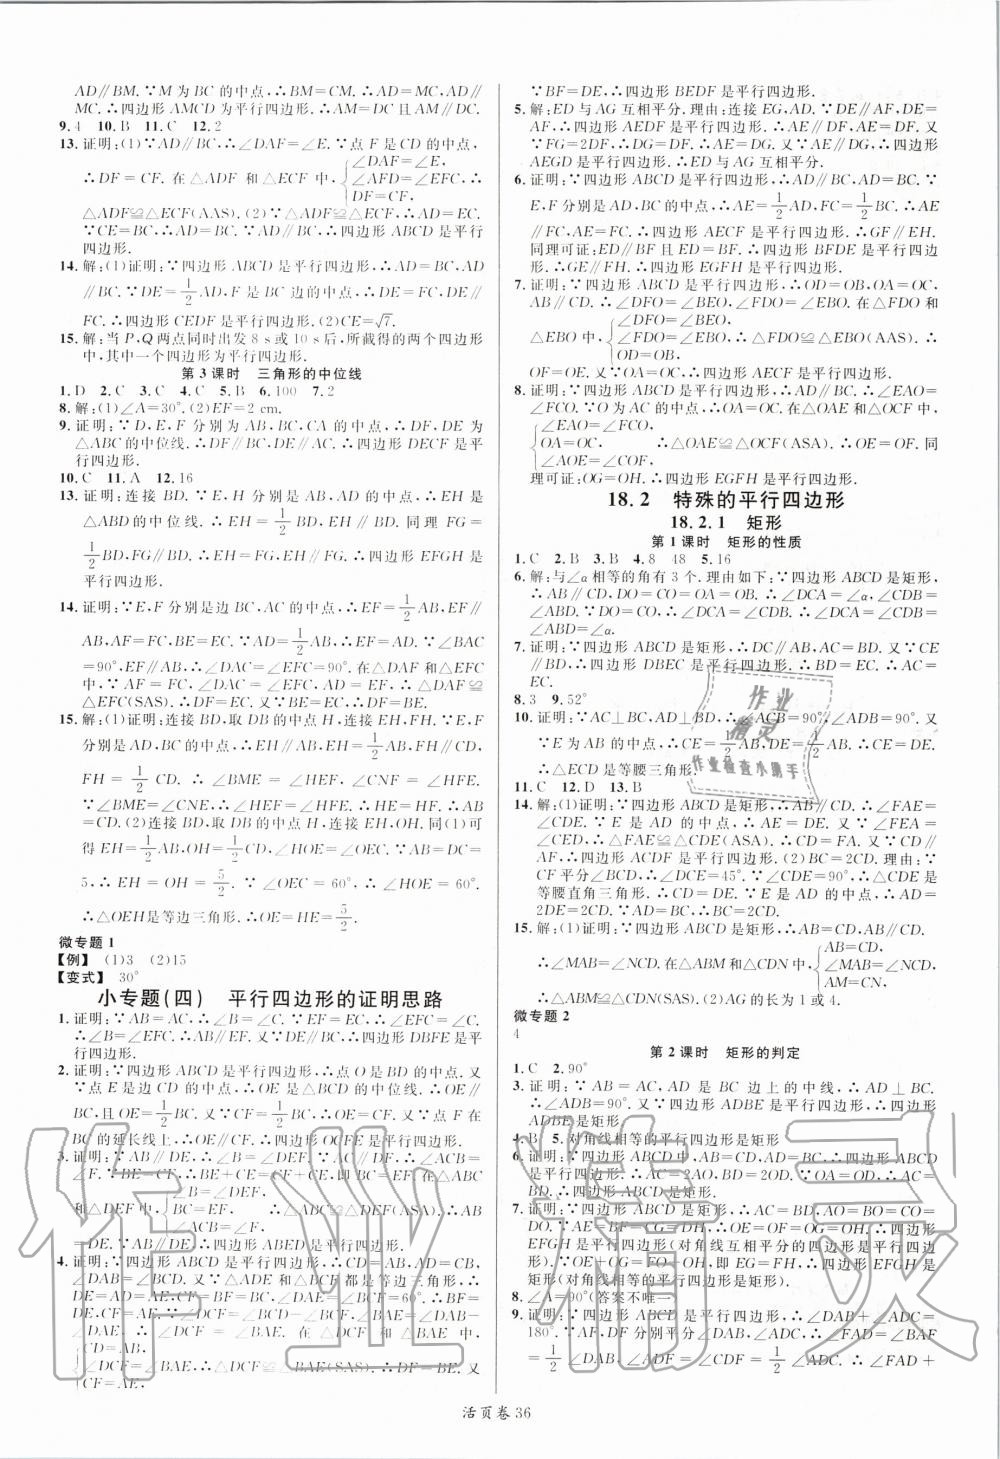 AD∥BM.∵M 为 BC 的中点,∴BM=CM.∴AD=MC,AD∥
MC.∴四边形 AMCD 为平行四边形.∴AM=DC 且 AM∥DC.
9.4 10.B 11.C 12.2
13.证明:(1)∵AD∥BC,∴∠DAF=∠E.∵点 F 是 CD 的中点,
∠DAF=∠E,
∴DF=CF.在△ADF 和△ECF 中,∠AFD=∠EFC,∴
DF=CF.
△ADF≌△ECF(AAS).(2)∵△ADF≌△ECF,∴AD=EC.
∵CE=BC,∴AD=BC.∵AD∥BC,∴四边形 ABCD 是平行
四边形.
14.解:(1)证明:∵四边形 ABCD 是平行四边形,∴AD=BC,AD∥
BC.∵DE=1/2AD,F 是 BC 边的中点,∴DE=FC,DE∥
FC.∴四边形 CEDF 是平行四边形.(2)CE=√7.
15.解:当 P,Q 两点同时出发 8 s 或 10 s 后,所截得的两个四边形
中,其中一个四边形为平行四边形.
第 3 课时 三角形的中位线
1.D 2.C 3.C 4.C 5.B 6.100 7.2
8.解:(1)∠A=30°.(2)EF=2 cm.
9.证明:∵D,E,F 分别为 AB,BC,CA 的中点,∴DF,DE 为
△ABC 的中位线.∴DF∥BC,DE∥AC.∴四边形 DECF 是平
行四边形.
10.C 11.A 12.16
13.证明:连接 BD.∵E,H 分别是 AB,AD 的中点,∴EH 是
△ABD的中位线.∴EH=1/2BD,EH∥BD.同理 FG=
1/2BD,FG∥BD.∴EH=FG,EH∥FG.∴四边形 EFGH 是
平行四边形.
14.证明:∵E,F 分别是边 BC,AC 的中点,∴EF=1/2AB,EF∥
AB,AF=FC,BE=EC.∵AD=1/2AB,∴AD=EF.∵∠BAC
=90°,EF∥AB,∴∠DAC=∠EFC=90°.在△DAF 和△EFC
中,AD=FE,∠DAF=∠EFC,AF=FC,∴△DAF≌
△EFC(SAS).∴DF=EC.又∵BE=EC,∴DF=BE.
15.解:(1)证明:连接 BD,取 DB 的中点 H,连接 EH,FH.∵E,F
分别是 BC,AD 的中点,∴EH=1/2AB,EH∥AB,FH∥CD,
FH=1/2CD.∴∠BME=∠HEF,∠CNE=∠HFE.
∵∠BME=∠CNE,∴∠HEF=∠HFE.∴HE=HF.∴AB
=CD.(2)连接 BD,取 DB 的中点 H,连接 EH,OH.同(1)可
得 EH=1/2AB,OH=1/2CD,∠HOE=∠OEC.∵AB=DC=
5,∴EH=OH=5/2.∵∠OEC=60°,∴∠HOE=60°.
∴△OEH是等边三角形.∴OE=HE=5/2.
微专题 1
【例】 (1)3 (2)15
【变式】 30°
小专题(四) 平行四边形的证明思路
1.证明:∵AB=AC,∴∠B=∠C.∵EF=EC,∴∠EFC=∠C.
∴∠B=∠EFC.∴AB∥EF.又∵DE∥BF,∴四边形 DBFE 是平
行四边形.
2.证明:∵四边形 ABCD 是平行四边形,∴点 O 是 BD 的中点.又
∵点 E 是边 CD 的中点,∴OE 是△BCD 的中位线.∴OE∥
BC,且 OE=1/2BC.又∵CF=1/2BC,∴OE=CF.又∵点 F 在
BC 的延长线上,∴OE∥CF.∴四边形 OCFE 是平行四边形.
3.证明:∵AB∥DE,∴∠B=∠DEF.∵AC∥DF,∴∠ACB
=∠F.∵BE=CF,∴BE+CE=CF+CE,即 BC=EF.在
△ABC 和△DEF 中,∠B=∠DEF,BC=EF,∠ACB=∠F,∴△ABC≌△DEF(ASA).∴AB
=DE.∵AB∥DE,∴四边形 ABED 是平行四边形.
4.证明:∵△ABC 是等边三角形,∴AC=AB=BC,∠CAB=
∠DAB=∠EBC.又∵△ADE 和△CDF 都是等边三角形,∴
DE=AD=AE,CF=DF=DC,∠DCF=∠DAE=60°.∴BE=
DC=CF=AE.∵∠DCF=∠BCD-∠BCF,∠BAE=∠DAB-
∠DAE,∴∠DCF=∠BAE.在△DCF 和△BAE 中,
CD=AB,
∠DCF=∠BAE,∴△DCF≌△BAE(SAS).∴DF=BE.又
CF=AE,
∵BF=DE.∴四边形 BEDF 是平行四边形.
5.解:ED 与 AG 互相平分.理由:连接 EG,AD.∵DE∥AF,DE=
AF,∴四边形 AEDF 是平行四边形.∴AE∥DF,AE=DF.又
∵FG=2DF,∴DG=DF.∴AE=DG.又∵AE∥DG,∴四边形
AEGD 是平行四边形.∴ED 与 AG 互相平分.
6.证明:∵四边形 ABCD 是平行四边形,∴AD∥BC,AD=BC.∵
E,F 分别是 AD,BC 的中点,∴AE=1/2AD,FC=1/2BC.∴AE
∥FC,AE=FC.∴四边形 AECF 是平行四边形.∴GF∥EH.
同理可证:ED∥BF 且 ED=BF,∴四边形 BFDE 是平行四边
形.∴GE∥FH.∴四边形 EGFH 是平行四边形.
7.证明:∵四边形 ABCD 是平行四边形,∴OD=OB,OA=OC,
AB∥CD.∴∠DFO=∠BEO,∠FDO=∠EBO.在△FDO 和
∠DFO=∠BEO,
△EBO 中,∠FDO=∠EBO,∴△FDO≌△EBO(AAS).∴
OD=OB,
OF=OE.∴四边形 AECF 是平行四边形.
8.证明:∵四边形 ABCD 是平行四边形,∴AD∥BC.∴∠EAO=
∠FCO.∵O 为 AC 的中点,∴OA=OC.在△OAE 和△OCF 中,
∠EAO=∠FCO,
OA=OC, ∴△OAE≌△OCF(ASA).∴OE=OF.同
∠AOE=∠COF,
理可证:OG=OH.∴四边形 EGFH 是平行四边形.
18.2 特殊的平行四边形
18.2.1 矩形
第 1 课时 矩形的性质
1.C 2.B 3.B 4.8 48 5.16
6.解:与∠α 相等的角有 3 个.理由如下:∵四边形 ABCD 是矩形,
∴AB∥CD,OC=DO=OA=OB.∴∠DCA=∠α,∠CDB=
∠DBA.∵DO=CO,∴∠DCA=∠CDB.∴∠DCA=∠CDB
=∠DBA=∠α.
7.证明:∵四边形 ABCD 是矩形,∴DC∥AB,AC=BD.又∵CE
∥BD,∴四边形 DBEC 是平行四边形.∴BD=EC.∴AC=CE.
8.3 9.52°
10.证明:∵AC⊥BC,AD⊥BD,∴∠ACB=90°,∠ADB=90°.又
∵E 为 AB 的中点,∴CE=1/2AB,DE=1/2AB.∴CE=DE.
∴△ECD 是等腰三角形.
11.C 12.D 13.B
14.解:(1)证明:∵四边形 ABCD 是矩形,∴AB∥CD.∴∠FAE=
∠CDE.∵E 是 AD 的中点,∴AE=DE.又∵∠FEA=
∠CED,∴△FAE≌△CDE(ASA).∴CD=FA.又∵CD∥
AF,∴四边形 ACDF 是平行四边形.(2)BC=2CD.理由:∵
CF平分∠BCD,∴∠DCE=45°.∵∠CDE=90°,∴△CDE 是
等腰直角三角形.∴CD=DE.∵E 是 AD 的中点,∴AD=
2DE=2CD.∵AD=BC,∴BC=2CD.
15.解:(1)证明:∵四边形 ABCD 是矩形,∴AB=CD,AD=BC.
AB=CD,
∴AC=AC.在△ABC 和△CDA 中,BC=AD,
AC=CA,
∴△ABC≌△CDA(SSS).(2)AG 的长为 1 或 4.
微专题 2
4
第 2 课时 矩形的判定
1.C 2.90°
3.证明:∵AB=AC,AD 是 BC 边上的中线,∴AD⊥BC.
∴∠ADB=90°.又∵四边形 ADBE 是平行四边形,∴四边形
ADBE是矩形.
4.B 5.对角线相等的平行四边形是矩形
6.证明:∵四边形 ABCD 是平行四边形,∴AO=CO,BO=
DO.∴AC=2AO,BD=2OD.∵OA=OD,∴AC=
BD.∴四边形 ABCD 是矩形.
7.证明:∵四边形 ABCD 是矩形,∴AC=BD,AO=BO=CO=
DO.∵AE=BF=CG=DH,∴OE=OF=OG=OH.∴四边形
EFGH 是平行四边形(对角线互相平分的四边形是平行四边
形).∵OE+OG=FO+OH,即 EG=FH,∴四边形 EFGH 是
矩形(对角线相等的平行四边形是矩形).
8.∠A=90°(答案不唯一)
9.证明:∵四边形 ABCD 是平行四边形,∴∠DAB+∠ADC=
180°.∵AF,DF 分别平分∠DAB,∠ADC,∴∠FAD=∠BAF
=1/2∠DAB,∠ADF=∠CDF=1/2∠ADC.∴∠FAD+
活页卷 36
作业
精灵
作业检查小助手
作业精灵